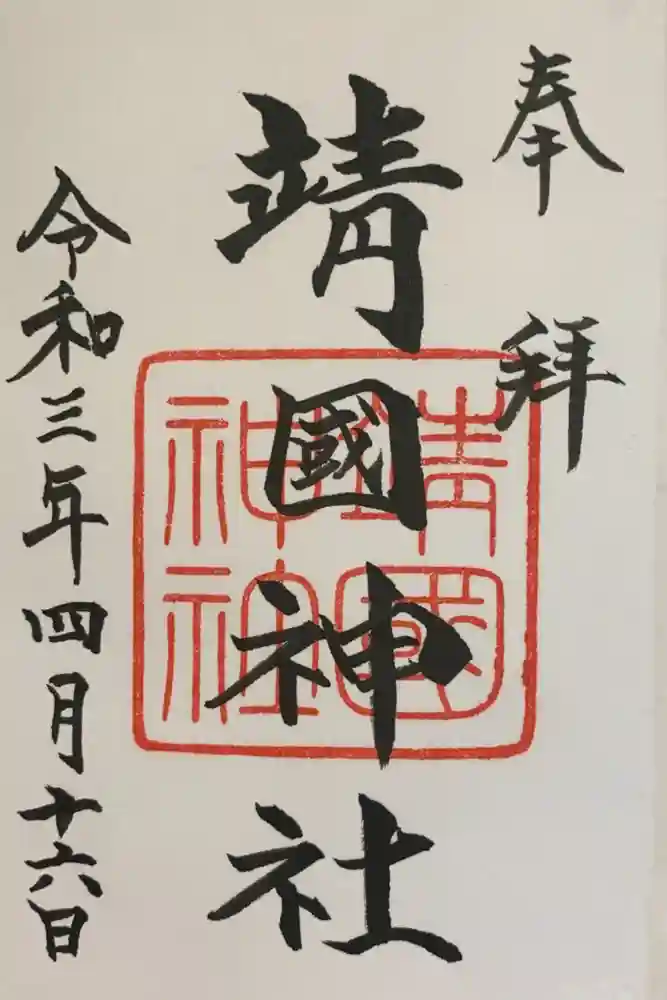 奉拝
靖國神社
靖國
神社
令和三年四月十六日